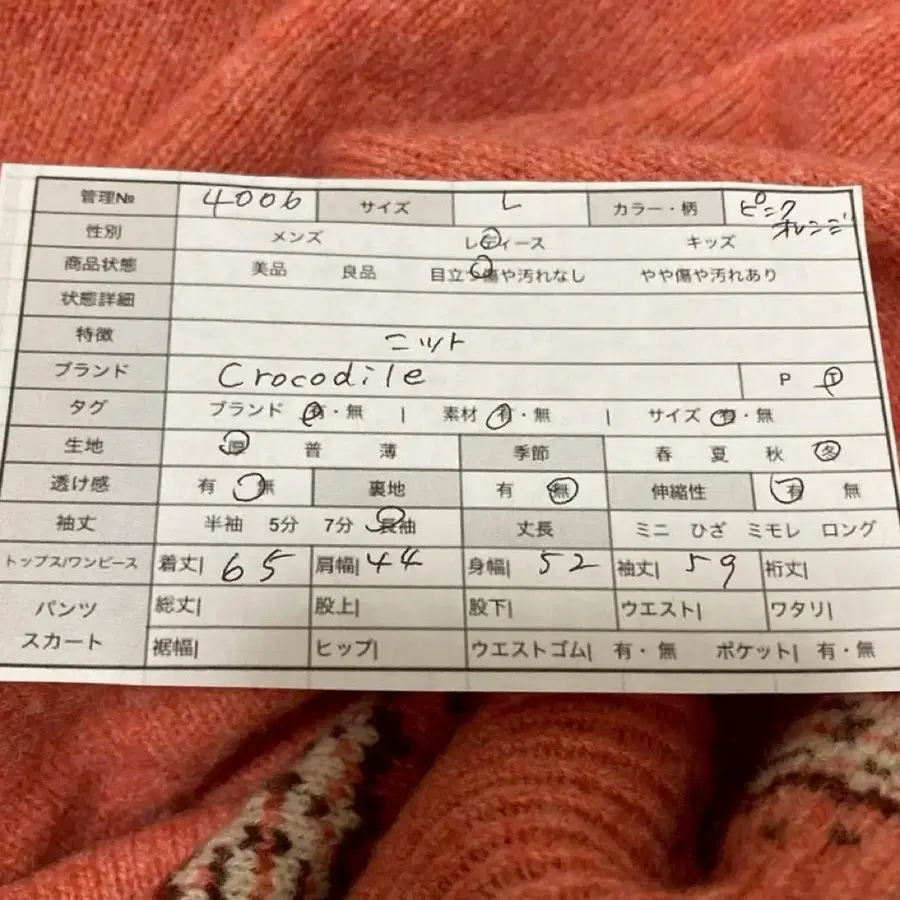 管理№ 4006 サイズ L カラー・柄 ピンク
オレンジ
性別 メンズ レディース キッズ
商品状態 美品 良品 目立つ傷や汚れなし やや傷や汚れあり
状態詳細
特徴 ニット
ブランド Crocodile P I
タグ ブランド 有・無 | 素材 有・無 | サイズ 有・無
生地 厚 普 薄 季節 春 夏 秋 冬
透け感 有 無 裏地 有 無 伸縮性 有 無
袖丈 半袖 5分 7分 長袖 丈長 ミニ ひざ ミモレ ロング
トップス/ワンピース 着丈| 65 肩幅| 44 身幅| 52 袖丈| 59 裄丈|
パンツ 総丈| 股上| 股下| ウエスト| ワタリ|
スカート 裾幅| ヒップ| ウエストゴム| 有・無 ポケット| 有・無